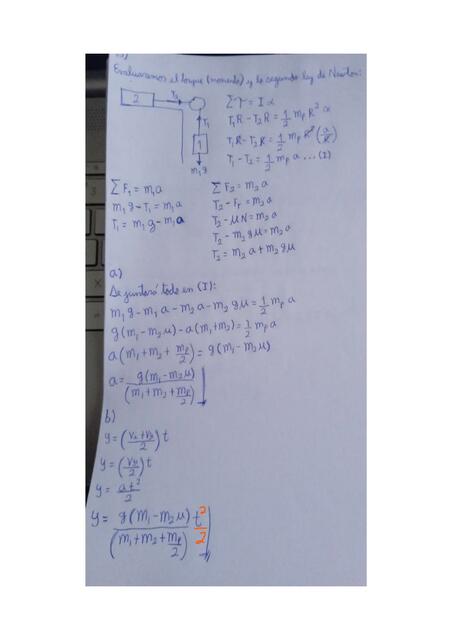 Evaluaremos el torque (momento) y la segunda ley de Newton:
2
T₂
T₁
1
m₁g
Στ = Iα
T₁R - T₂R = 1/2 mₚ R² α
T₁R - T₂R = 1/2 mₚ R² (a/R)
T₁ - T₂ = 1/2 mₚ a ... (I)
ΣF₁ = m₁a
m₁g - T₁ = m₁a
T₁ = m₁g - m₁a
ΣF₂ = m₂a
T₂ - Fᵣ = m₂a
T₂ - μN = m₂a
T₂ - m₂gμ = m₂a
T₂ = m₂a + m₂gμ
a)
Se juntará todo en (I):
m₁g - m₁a - m₂a - m₂gμ = 1/2 mₚ a
g(m₁ - m₂μ) - a(m₁+m₂) = 1/2 mₚ a
a(m₁ + m₂ + mₚ/2) = g(m₁ - m₂μ)
a = g(m₁ - m₂μ) / (m₁ + m₂ + mₚ/2)
b)
y = ((v₀ + v)/2) t
y = (v/2) t
y = at²/2
y = g(m₁ - m₂μ) / (m₁ + m₂ + mₚ/2) t²/2